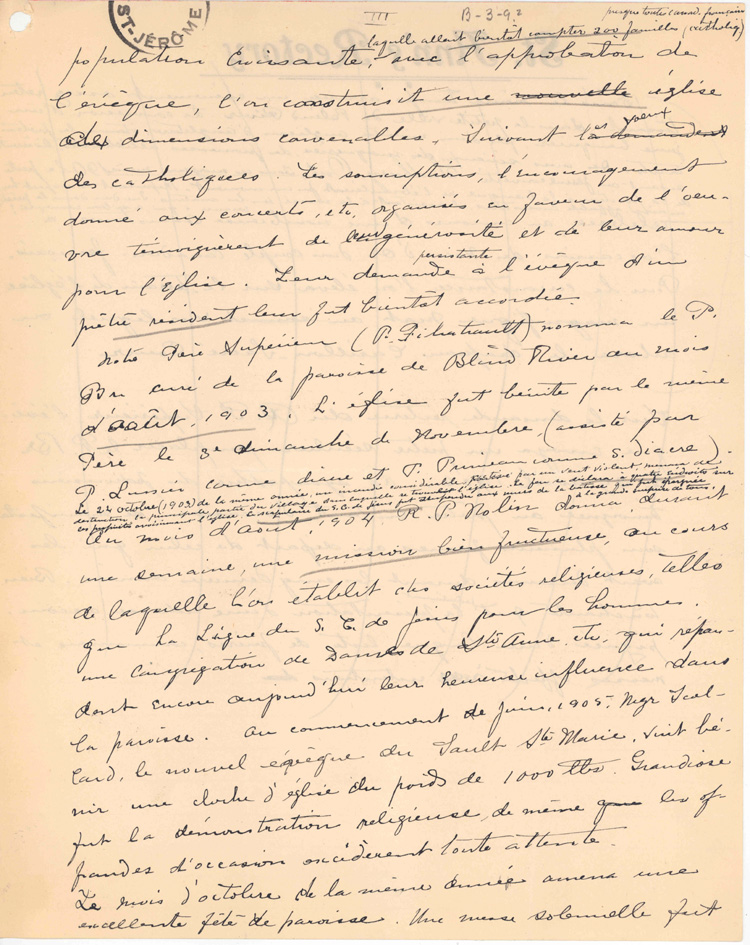 ST-JÉRÔME
III
B-3-9.2
presque toutes canad. françaises
laquelle allait bientôt compter 200 familles (catholiq)
population croissante, avec l'approbation de
l'évêque, l'on construisit une nouvelle église
de dimensions convenables. Suivant les voeux
des catholiques. Les souscriptions, l'encouragement
donné aux concerts, etc, organisés en faveur de l'oeu-
vre témoignèrent de leur générosité et de leur amour
persistante
pour l'Eglise. Leur demande à l'évêque d'un
prêtre résident leur fut bientôt accordée.
Notre Père Supérieur (P. Filiatrault) nomma le P.
curé de la paroisse de Blind River au mois
d'août, 1903. L'église fut bénite par le même
Père le 3e dimanche de Novembre (assisté par
P. Lussier comme diacre et P. Primeau comme S. diacre).
Le 24 octobre (1903) de la même année, un incendie considérable poussé par un vent violent menaça de
destruction la principale partie du village dans laquelle se trouvait l'église. Le feu se déclara à
les propriétés avoisinant l'église. Le scapulaire du S. C. de Jésus fut suspendu aux murs de la bâtisse qui fut épargnée
à la grande surprise de tous.
Au mois d'Août, 1904 R. P. Nolin donna durant
une semaine, une mission bien fructueuse, au cours
de laquelle l'on établit des sociétés religieuses, telles
que La Ligue du S. C. de Jésus pour les hommes.
une congrégation de Dames de Ste Anne, etc, qui répan-
dent encore aujourd'hui leur heureuse influence dans
la paroisse. Au commencement de juin, 1905, Mgr Scol-
lard, le nouvel évêque du Sault Ste Marie, vint bé-
nir une cloche d'église du poids de 1000 lbs. Grandiose
fut la démonstration religieuse, de même que les of-
frandes d'occasion excédèrent toute attente.
Le mois d'octobre de la même année amena une
excellente fête de paroisse. Une messe solennelle fut